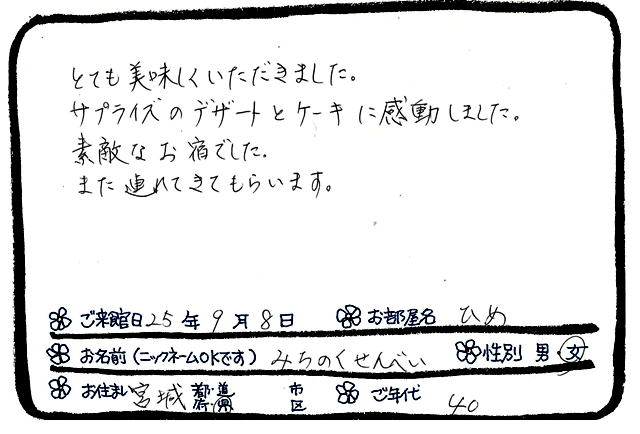 とても美味しくいただきました。
サプライズのデザートとケーキに感動しました。
素敵なお宿でした。
また連れてきてもらいます。
ご来館日 25年 9月 8日 お部屋名 ひめ
お名前(ニックネームOKです) みちのくせんべい 性別 男・女
お住まい 宮城 都道府県 市区 ご年代 40